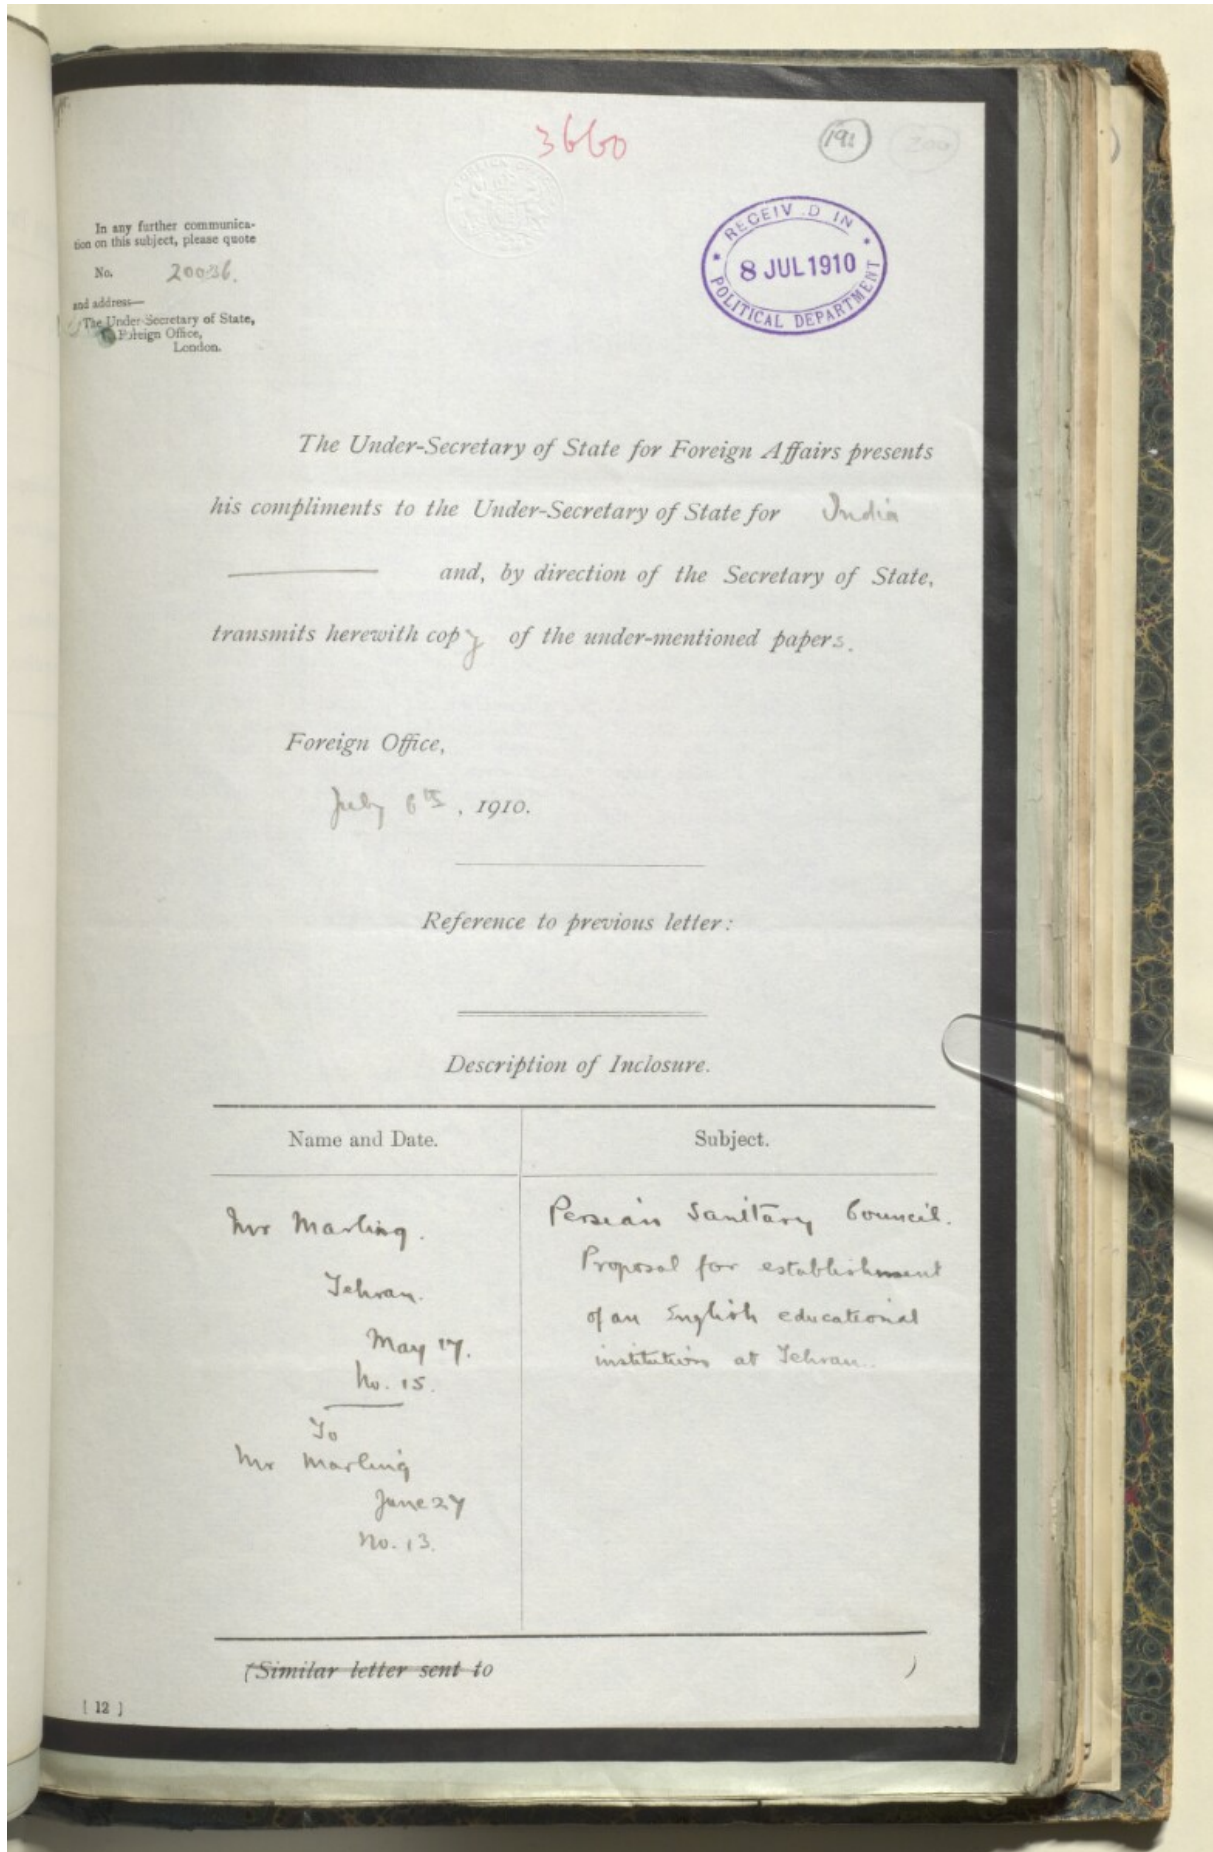 3660
191
In any further communica-
tion on this subject, please quote
No. 20036.
and address—
The Under-Secretary of State,
Foreign Office,
London.
RECEIVED IN
8 JUL 1910
POLITICAL DEPARTMENT
The Under-Secretary of State for Foreign Affairs presents
his compliments to the Under-Secretary of State for India
and, by direction of the Secretary of State,
transmits herewith copy of the under-mentioned papers.
Foreign Office,
July 6th, 1910.
Reference to previous letter:
Description of Inclosure.
Name and Date.
Subject.
Mr Marling.
Tehran.
May 17.
No. 15.
To
Mr Marling
June 27
No. 13.
Persian Sanitary Council.
Proposal for establishment
of an English educational
institution at Tehran.
(Similar letter sent to )
[ 12 ]